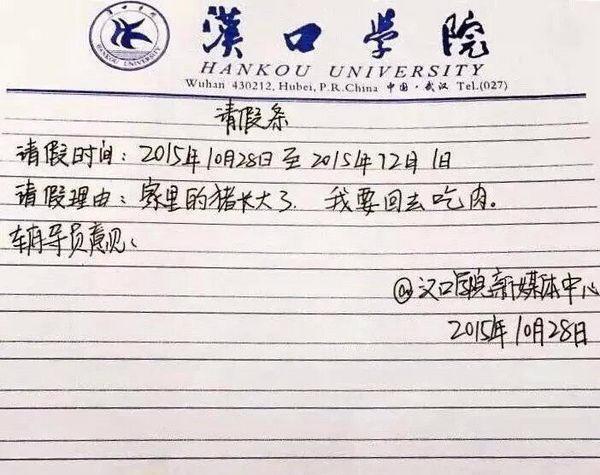 漢口学院
HANKOU UNIVERSITY
Wuhan 430212, Hubei, P.R.China 中国·武汉 Tel.(027)
请假条
请假时间：2015年10月28日至2015年12月1日
请假理由：家里的猪长大了，我要回去吃肉。
辅导员意见：
@汉口学院新媒体中心
2015年10月28日